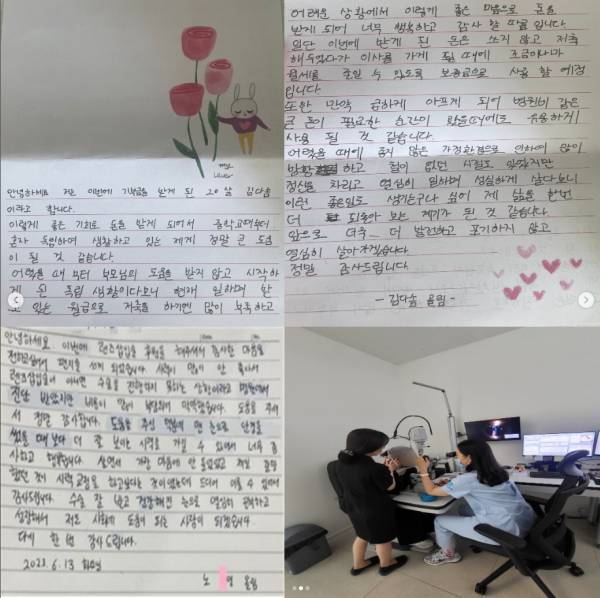 안녕하세요 저는 이번에 기부금을 받게 된 20살 김다솜
이라고 합니다.
이렇게 좋은 기회로 돈을 받게 되어서 중학교때부터
혼자 독립하여 생활하고 있는 제게 정말 큰 도움
이 될 것 같습니다.
어렸을 때 부터 부모님의 도움을 받지 않고 시작하
게 된 독립 생활이다보니 현재 일하며 받
고 있는 월급으로 저축을 하기엔 많이 부족하고
어려운 상황에서 이렇게 좋은 마음으로 돈을
받게 되어 너무 행복하고 감사 할 따름입니다.
일단 이번에 받게 된 돈은 쓰지 않고 저축
해두었다가 이사를 가게 될 때에 조금이나마
월세를 줄일 수 있도록 보증금으로 사용 할 예정
입니다.
또한 만약 급하게 아프게 되어 병원비 같은
큰 돈이 필요한 순간이 왔을때에도 유용하게
사용 될 것 같습니다.
어렸을 때에 좋지 않은 가정환경으로 인하여 많이
방황 하고 힘이 없던 시절도 있었지만
정신을 차리고 열심히 일하며 성실하게 살다보니
이런 좋은일도 생기는구나 싶어 제 삶을 한번
더 되돌아 보는 계기가 된 것 같습니다.
앞으로 더욱 더 발전하고 포기하지 않고
열심히 살아가겠습니다.
정말 감사드립니다.
- 김다솜 올림 -
안녕하세요 이번에 렌즈삽입술 후원을 해주셔서 감사한 마음을
전하고싶어서 편지를 쓰게 되었습니다. 시력이 많이 안 좋아서
렌즈삽입술이 아니면 수술을 진행하지 못하는 상황이라고 병원에서
진단 받았지만 비용이 많이 부담되어 막막했습니다. 도움을 주셔
서 정말 감사합니다. 도움을 주신 덕분에 맨 눈으로 안경을
썼을 때 보다 더 잘 보이는 시력을 가질 수 있어서 너무 감
사하고 행복합니다. 살면서 가장
했던 것이 시력 교정을 하고싶다는 것이었는데 드디어 이룰 수 있어서
감사드립니다. 수술 잘 받고 건강해진 눈으로 열심히 노력하고
성장해서 저도 사회에 도움이 되는 사람이 되겠습니다.
다시 한 번 감사드립니다.
2023. 6. 13 화요일
노 영 올림